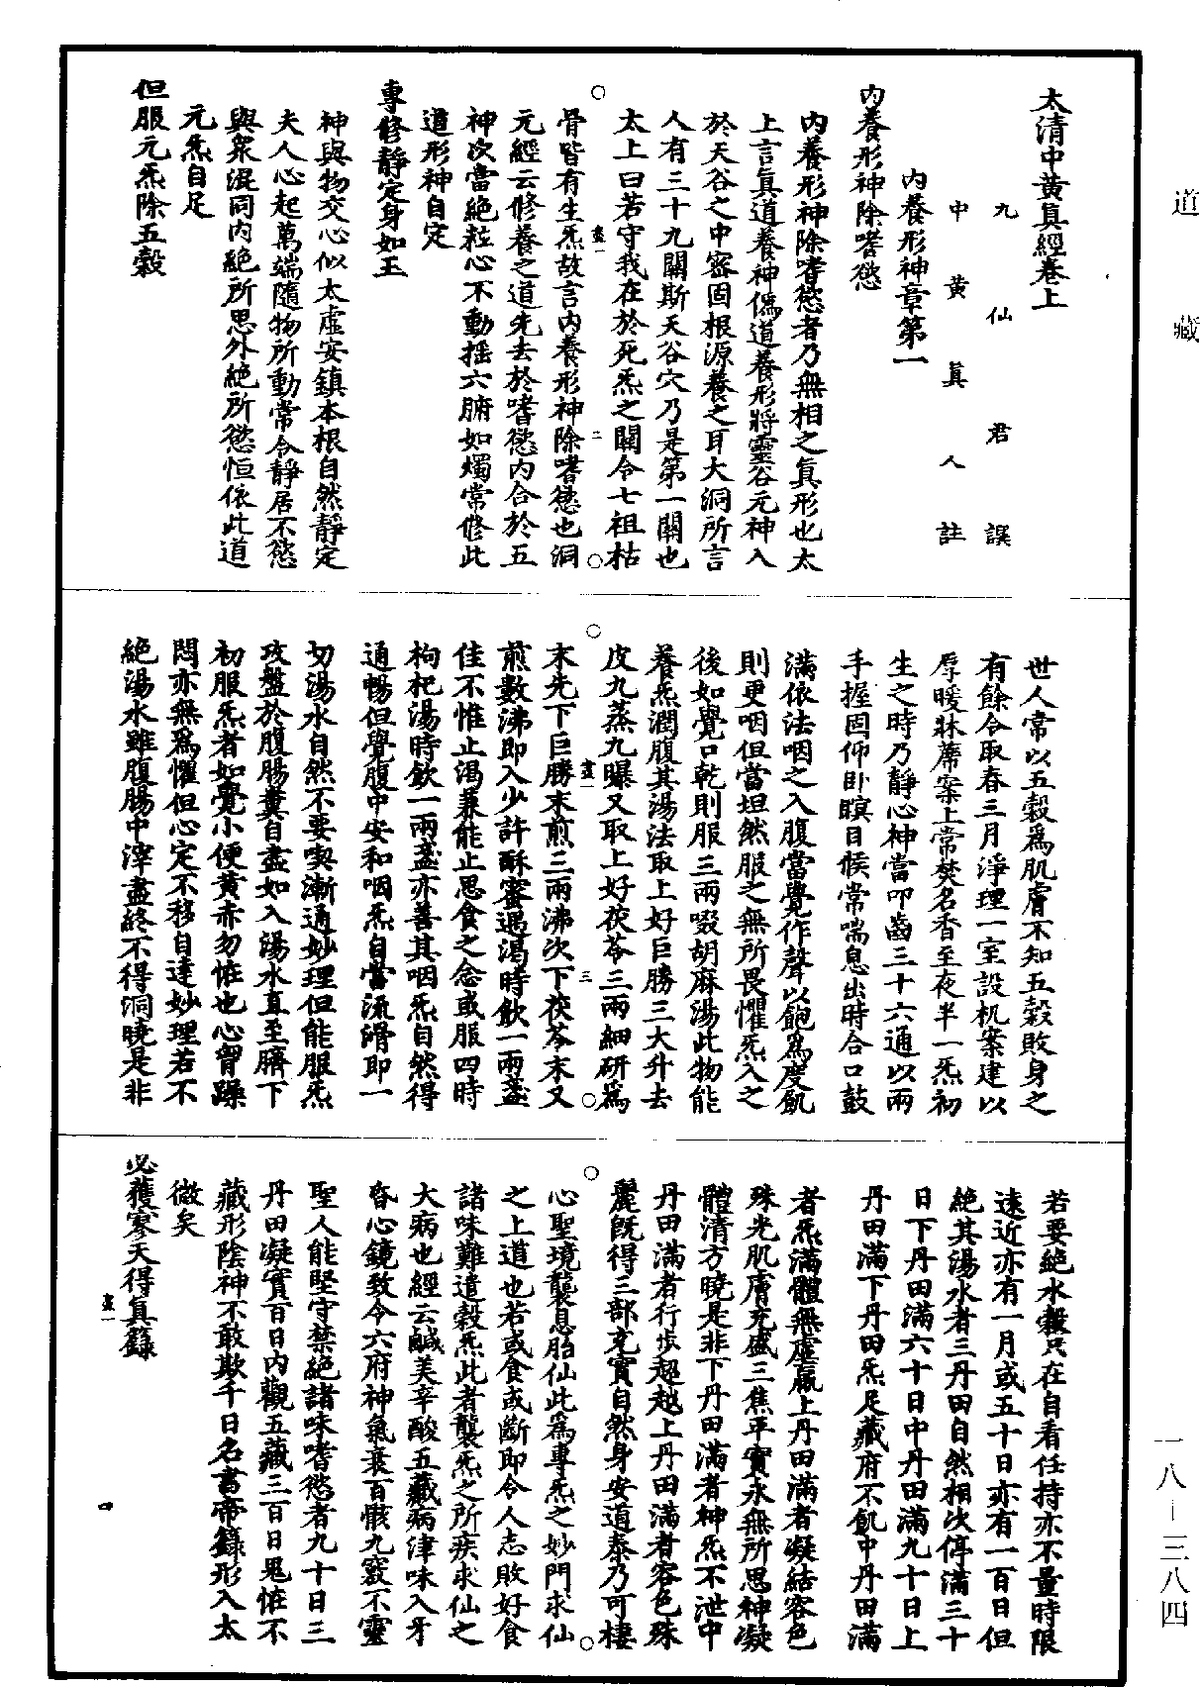 道藏
太清中黃真經卷上
九仙君譔
中黃真人註
內養形神章第一
內養形神除嗜慾
內養形神除嗜慾者乃無相之真形也太
上言真道養神偽道養形將靈谷元神入
於天谷之中密固根源養之耳大洞所言
人有三十九關斯天谷穴乃是第一關也
太上曰若守我在於死炁之關令七祖枯
骨皆有生炁故言內養形神除嗜慾也洞
元經云修養之道先去於嗜慾內合於五
神次當絕粒心不動搖六腑如燭常修此
道形神自定
專修靜定身如玉
神與物交心似太虛安鎮本根自然靜定
夫人心起萬端隨物所動常令靜居不慾
與衆混同內絕所思外絕所慾恒依此道
元炁自足
但服元炁除五穀
世人常以五穀爲肌膚不知五穀敗身之
有餘令取春三月淨理一室設机案建以
厚暖牀蓆案上常焚名香至夜半一炁初
生之時乃靜心神當叩齒三十六通以兩
手握固仰卧瞑目候常喘息出時合口鼓
滿依法咽之入腹當覺作聲以飽爲度飢
則更咽但當坦然服之無所畏懼炁入之
後如覺口乾則服三兩啜胡麻湯此物能
養炁潤腹其湯法取上好巨勝三大升去
皮九蒸九曝又取上好茯苓三兩細研爲
末先下巨勝末煎三兩沸次下茯苓末又
煎數沸即入少許酥蜜遇渴時飲一兩盞
佳不惟止渴兼能止思食之念或服四時
枸杞湯時飲一兩盞亦善其咽炁自然得
通暢但覺腹中安和咽炁自當流滑即一
切湯水自然不要喫漸通妙理但能服炁
攻盤於腹腸糞自盡如入湯水直至臍下
初服炁者如覺小便黃赤勿怪也心胷躁
悶亦無爲懼但心定不移自達妙理若不
絕湯水雖腹腸中滓盡終不得洞曉是非
若要絕水穀只在自看任持亦不量時限
遠近亦有一月或五十日亦有一百日但
絕其湯水者三丹田自然相次停滿三十
日下丹田滿六十日中丹田滿九十日上
丹田滿下丹田炁足藏府不飢中丹田滿
者炁滿體無虛羸上丹田滿者凝結容色
殊光肌膚充盛三焦平實永無所思神凝
體清方曉是非下丹田滿者神炁不泄中
丹田滿者行步超越上丹田滿者容色殊
麗旣得三部充實自然身安道泰乃可棲
心聖境襲息胎仙此爲專炁之妙門求仙
之上道也若或食或斷即令人志敗好食
諸味難遣穀炁此者襲炁之所疾求仙之
大病也經云鹹美辛酸五藏病津味入牙
昏心鏡致令六府神氣衰百骸九竅不靈
聖人能堅守禁絕諸味嗜慾者九十日三
丹田凝實百日內觀五藏三百日鬼怪不
藏形陰神不敢欺千日名書帝籙形入太
微矣
必獲寥天得真籙
一八—三八四